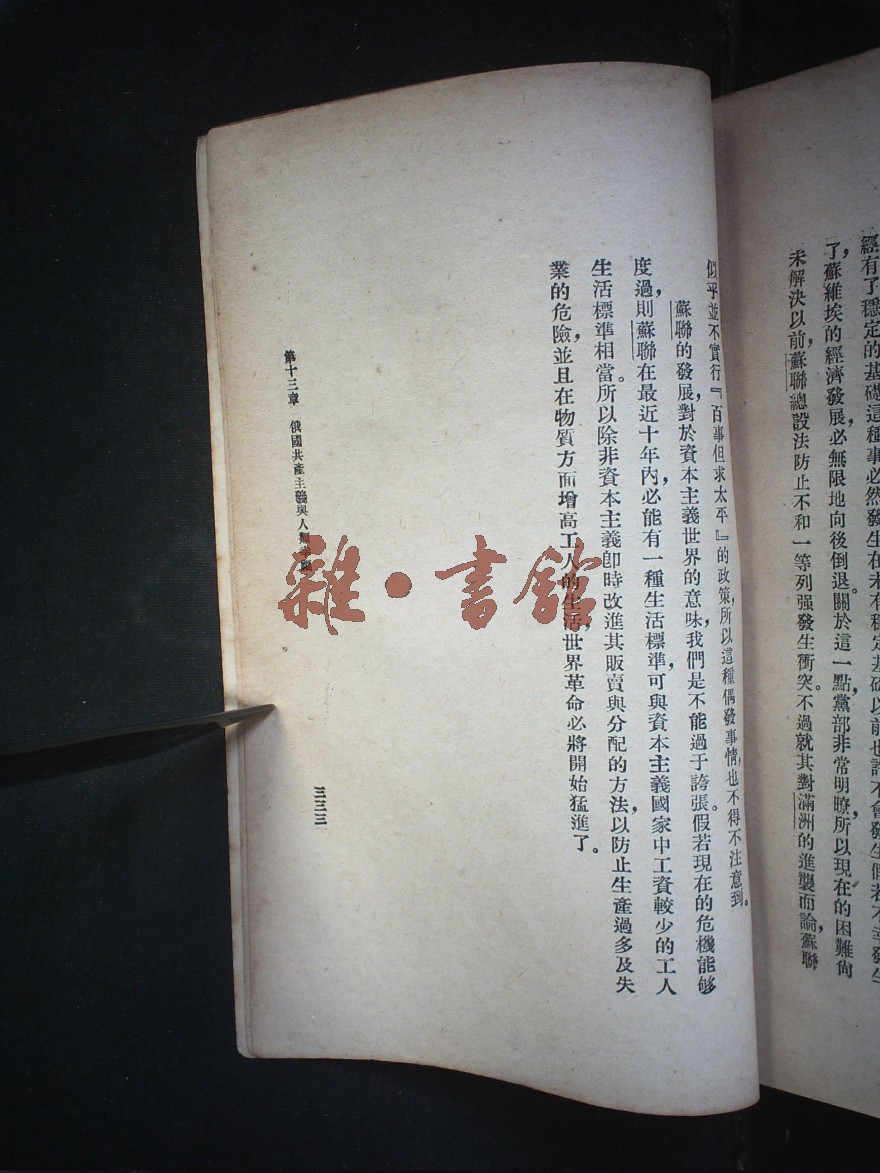 經有了穩定的基礎這種事必然發生在未有穩定基礎以前也許不會發生假若不幸發生
了，蘇維埃的經濟發展必無限地向後倒退。關於這一點，黨部非常明瞭，所以現在的困難尙
未解決以前，蘇聯總設法防止不和一等列强發生衝突。不過就其對滿洲的進襲而論，蘇聯
似乎並不實行『百事但求太平』的政策，所以這種偶發事情，也不得不注意到。
蘇聯的發展，對於資本主義世界的意味，我們是不能過于誇張。假若現在的危機能够
度過，則蘇聯在最近十年內，必能有一種生活標準，可與資本主義國家中工資較少的工人
生活標準相當。所以除非資本主義卽時改進其販賣與分配的方法，以防止生產過多及失
業的危險，並且在物質方面增高工人的生活，世界革命必將開始猛進了。
第十三章 俄國共產主義與人類
三三三
雜·書館